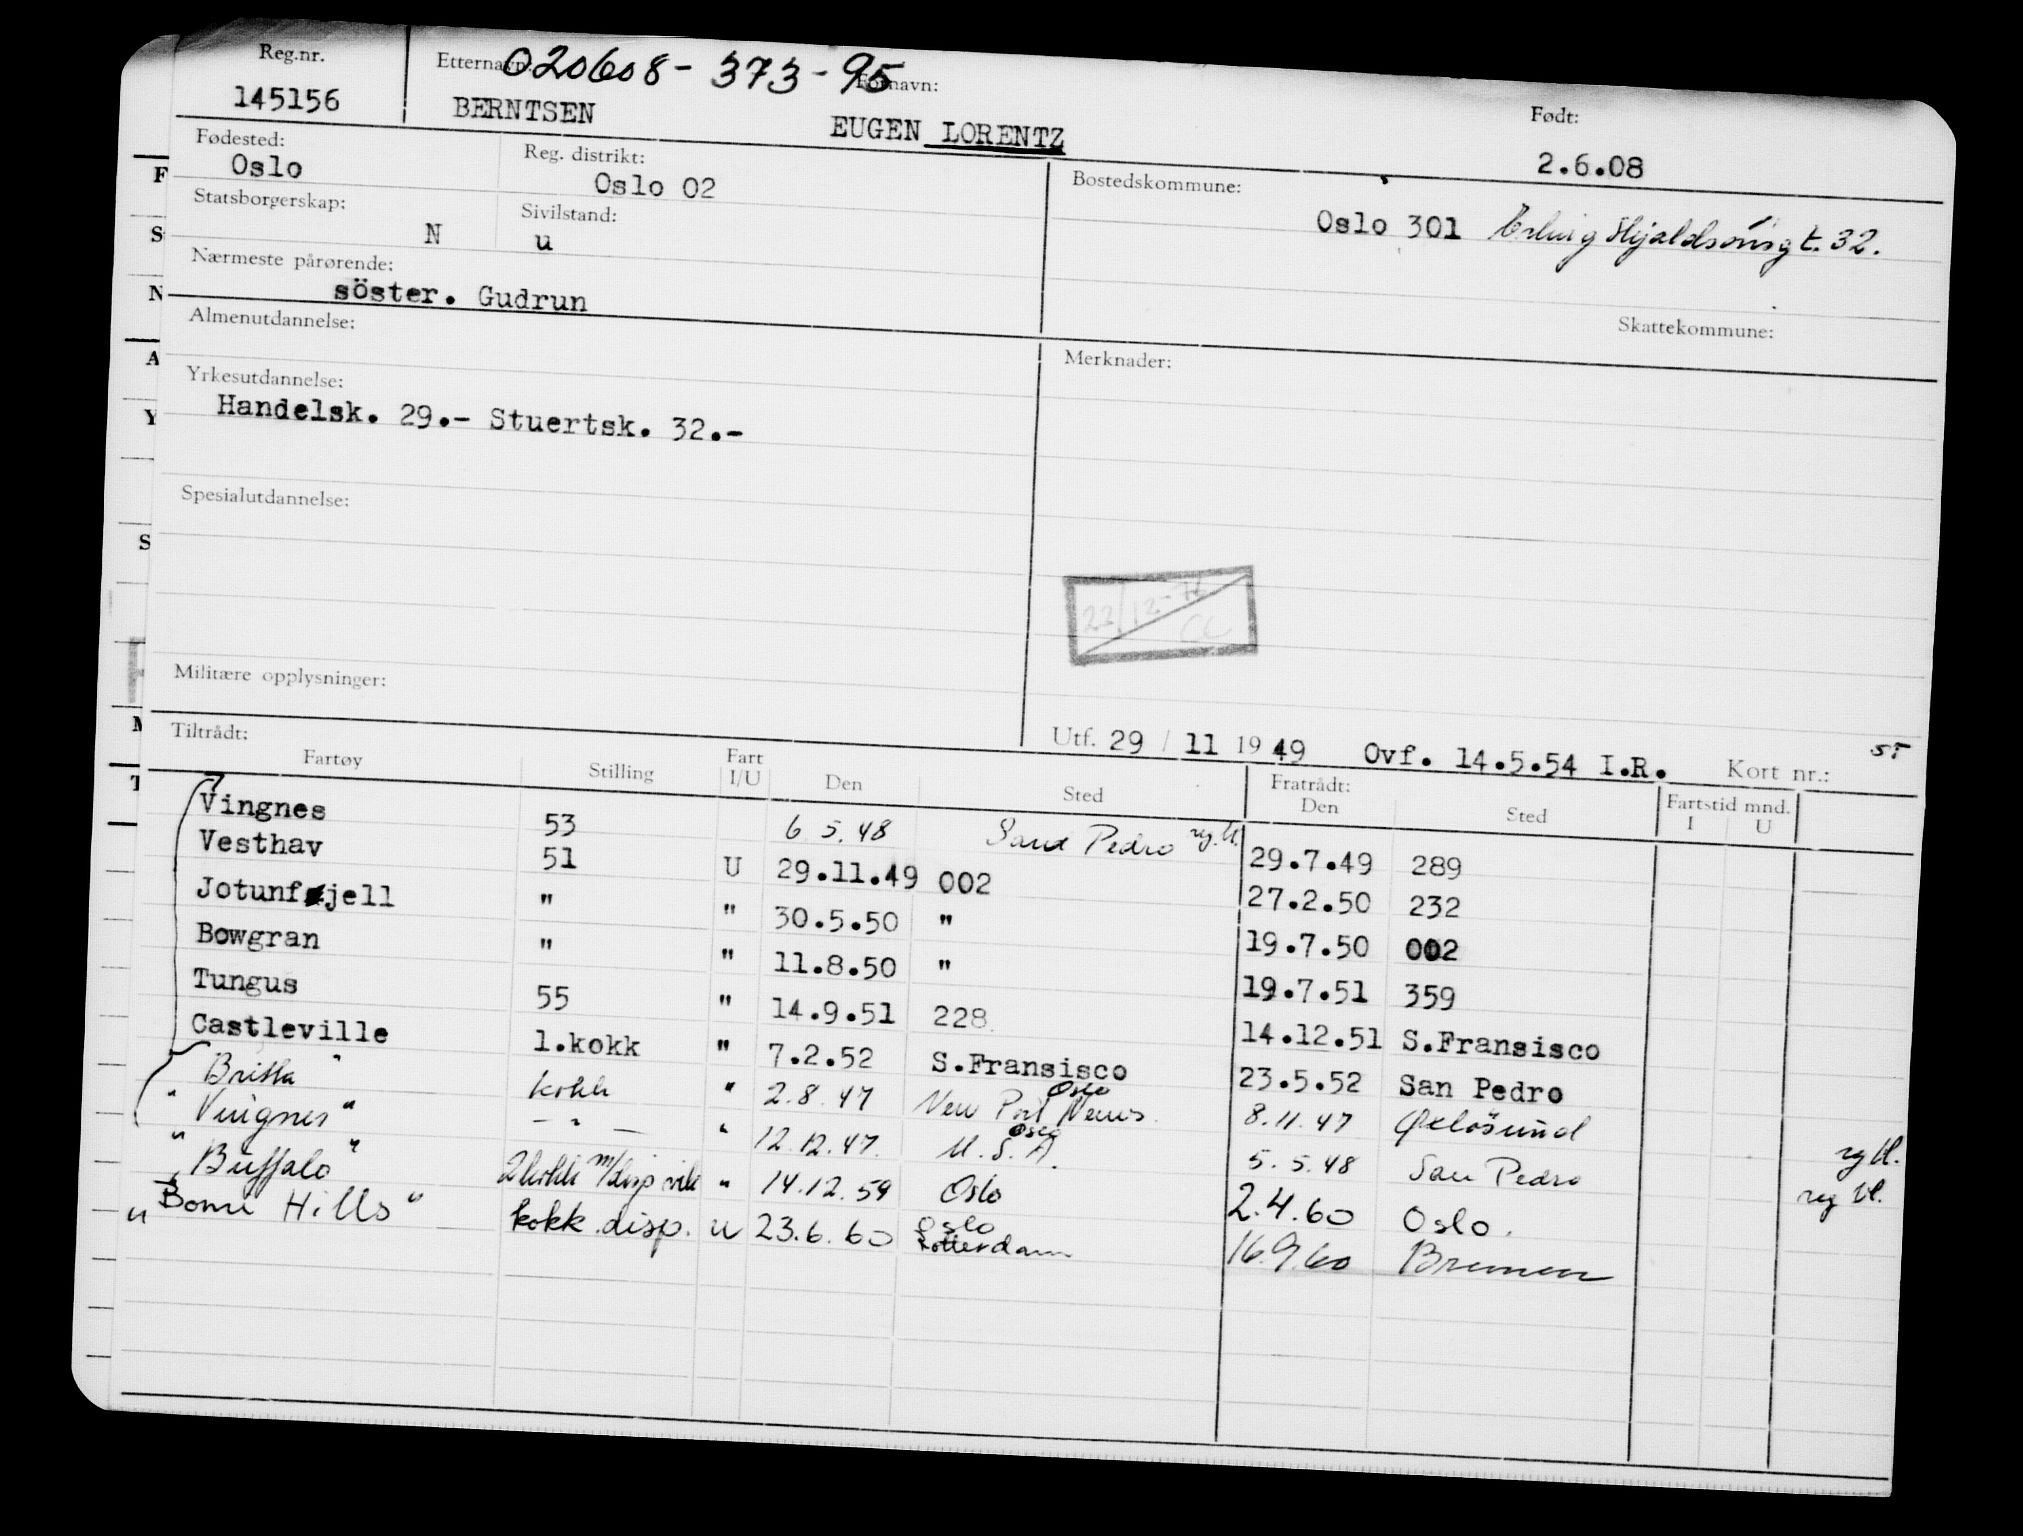 Reg.nr. Etternavn: 020608-373-95 Fornavn: Født:
145156 BERNTSEN EUGEN LORENTZ 2.6.08
Fødested: Reg. distrikt: Bostedskommune:
Oslo Oslo 02 Oslo 301 Erling Skjaldsonsgt. 32.
Statsborgerskap: Sivilstand:
N u
Nærmeste pårørende:
söster. Gudrun
Almenutdannelse: Skattekommune:
Merknader:
Yrkesutdannelse:
Handelsk. 29.- Stuertsk. 32.-
Spesialutdannelse:
22/12-76
CC
Militære opplysninger:
Utf. 29 / 11 1949 Ovf. 14.5.54 I.R. Kort nr.: ST
Tiltrådt: Fratrådt: Fartstid mnd.
Fartøy Stilling Fart I/U Den Sted Den Sted I U
Vingnes 53 6.5.48 Sand Pedro 29.7.49 289
Vesthav 51 U 29.11.49 002 27.2.50 232
Jotunfjell " " 30.5.50 " 19.7.50 002
Bowgran " " 11.8.50 " 19.7.51 359
Tungus 55 " 14.9.51 228 14.12.51 S.Fransisco
Castleville 1.kokk " 7.2.52 S.Fransisco 23.5.52 San Pedro
Britta " kokk " 2.8.47 New Port News Oslo 8.11.47 Oxelösund
" Vingnes " - " - " 12.12.47. U.S.A. Oslo 5.5.48 San Pedro
" Buffalo " 2 kokk m/disp " 14.12.59 Oslo 2.4.60 Oslo.
" Bomi Hills " kokk.disp. u 23.6.60 Oslo Rotterdam 16.9.60 Bremen
F
S
N
A
Y
S
M
T